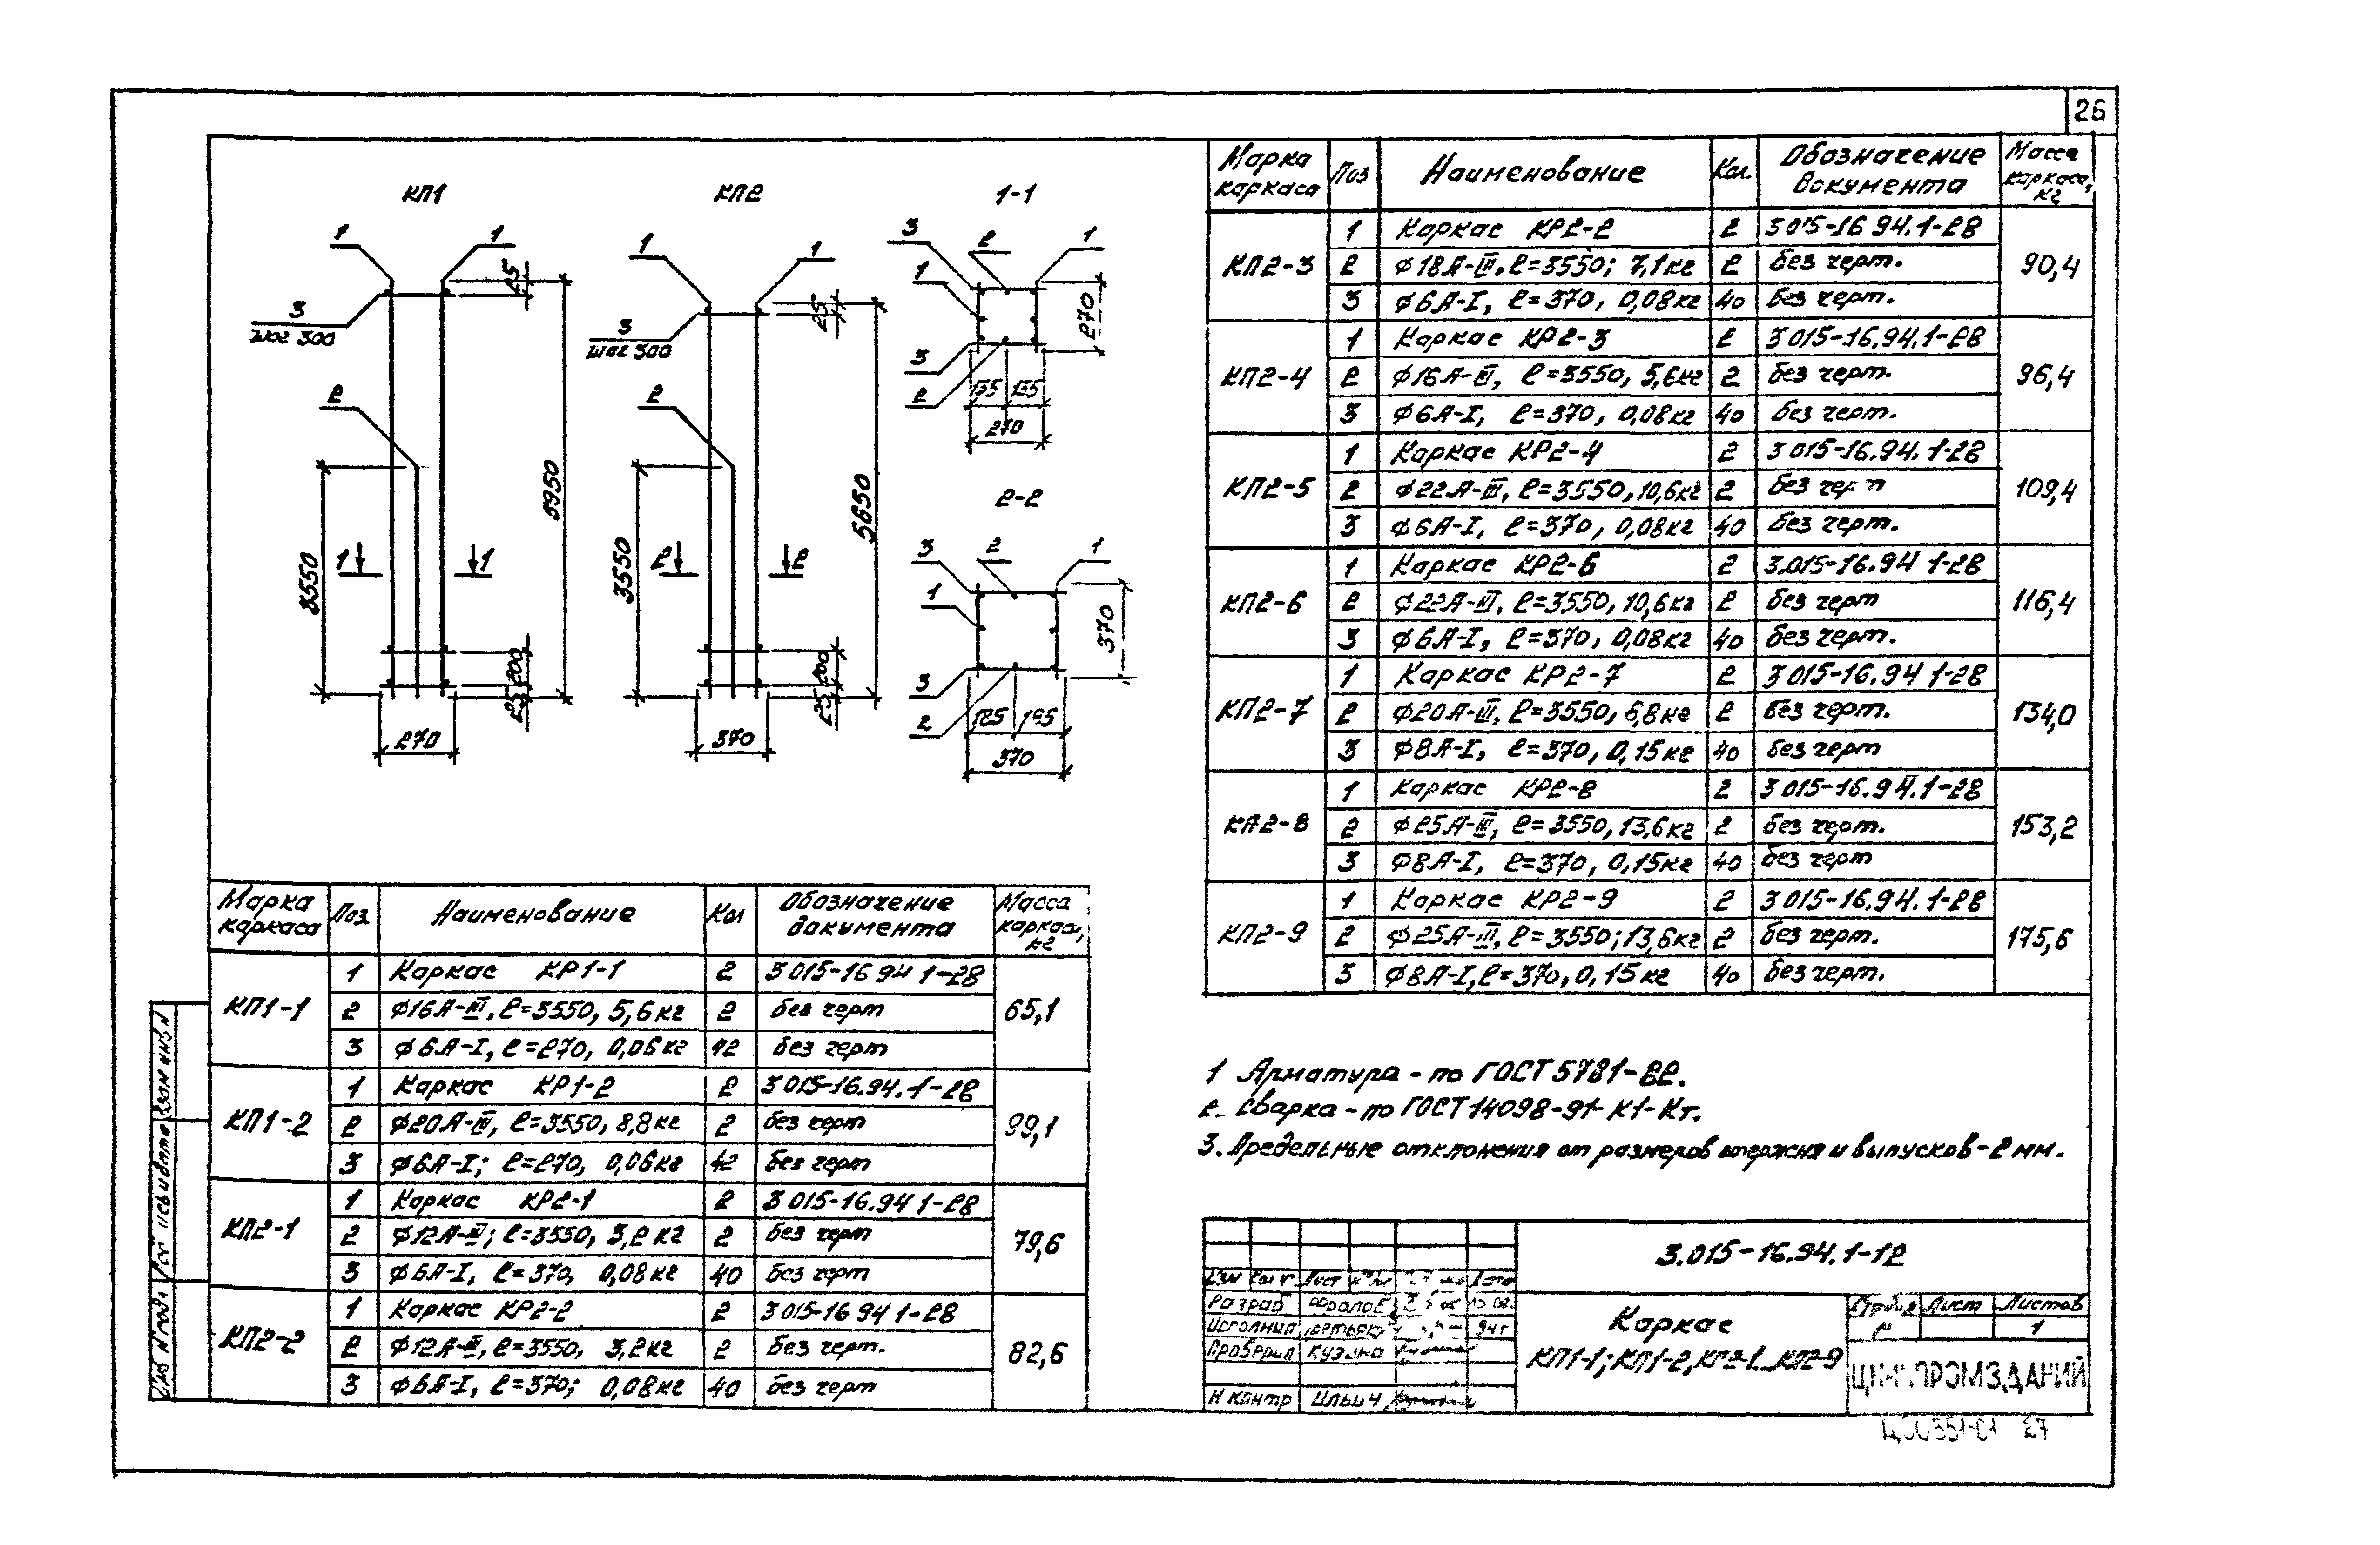 26
КП1
КП2
1-1
2-2
1 1
3
шаг 300
2
25
5950
3550
1 1
200
25
270
1 1
3
шаг 300
2
25
5650
3550
2 2
200
25
370
3 2 1
1
3
2
270
135 135
270
3 2 1
1
3
2
370
185 185
370
Марка каркаса Поз Наименование Кол Обозначение документа Масса каркаса, кг
КП1-1 65,1
1 Каркас КР1-1 2 3 015-16 94 1-28
2 ф16А-III, ℓ=3550, 5,6кг 2 без черт
3 ф6А-I, ℓ=270, 0,06кг 42 без черт
КП1-2 99,1
1 Каркас КР1-2 2 3 015-16.94.1-28
2 ф20А-III, ℓ=3550, 8,8кг 2 без черт
3 ф6А-I; ℓ=270, 0,06кг 42 без черт
КП2-1 79,6
1 Каркас КР2-1 2 3 015-16.94 1-28
2 ф12А-III; ℓ=3550, 3,2кг 2 без черт
3 ф6А-I, ℓ=370, 0,08кг 40 без черт
КП2-2 82,6
1 Каркас КР2-2 2 3 015-16 94 1-28
2 ф12А-III, ℓ=3550, 3,2кг 2 без черт.
3 ф6А-I, ℓ=370; 0,08кг 40 без черт
Марка каркаса Поз Наименование Кол. Обозначение документа Масса каркаса, кг
КП2-3 90,4
1 Каркас КР2-2 2 3 015-16 94.1-28
2 ф18А-III, ℓ=3550; 7,1кг 2 без черт.
3 ф6А-I, ℓ=370, 0,08кг 40 без черт.
КП2-4 96,4
1 Каркас КР2-3 2 3 015-16.94.1-28
2 ф16А-III, ℓ=3550, 5,6кг 2 без черт.
3 ф6А-I, ℓ=370, 0,08кг 40 без черт.
КП2-5 109,4
1 Каркас КР2-4 2 3 015-16.94.1-28
2 ф22А-III, ℓ=3550, 10,6кг 2 без черт
3 ф6А-I, ℓ=370, 0,08кг 40 без черт.
КП2-6 116,4
1 Каркас КР2-6 2 3.015-16.94 1-28
2 ф22А-III, ℓ=3550, 10,6кг 2 без черт
3 ф6А-I, ℓ=370, 0,08кг 40 без черт.
КП2-7 134,0
1 Каркас КР2-7 2 3 015-16.94 1-28
2 ф20А-III, ℓ=3550, 8,8кг 2 без черт.
3 ф8А-I, ℓ=370, 0,15кг 40 без черт
КП2-8 153,2
1 Каркас КР2-8 2 3 015-16.94.1-28
2 ф25А-III, ℓ=3550, 13,6кг 2 без черт.
3 ф8А-I, ℓ=370, 0,15кг 40 без черт
КП2-9 175,6
1 Каркас КР2-9 2 3 015-16.94.1-28
2 ф25А-III, ℓ=3550; 13,6кг 2 без черт.
3 ф8А-I, ℓ=370, 0,15кг 40 без черт.
1 Арматура - по ГОСТ 5781-82.
2. Сварка - по ГОСТ 14098-91-К1-Кт.
3. Предельные отклонения от размеров стержня и выпусков - 2 мм.
3.015-16.94.1-12
Лист
Разраб
Исполнил 94г
Проверил
Н контр Ильин
Каркас
КП1-1; КП1-2, КП2-1...КП2-9
Стадия Лист Листов
Р 1
ЦНИИПРОМЗДАНИЙ
Ц00351-01 27